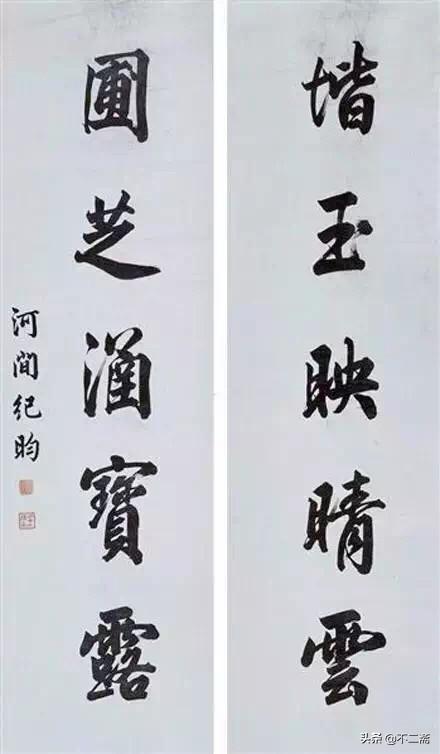 堦玉映晴雲
圃芝涵寶露
河間紀昀
头条@不二斋